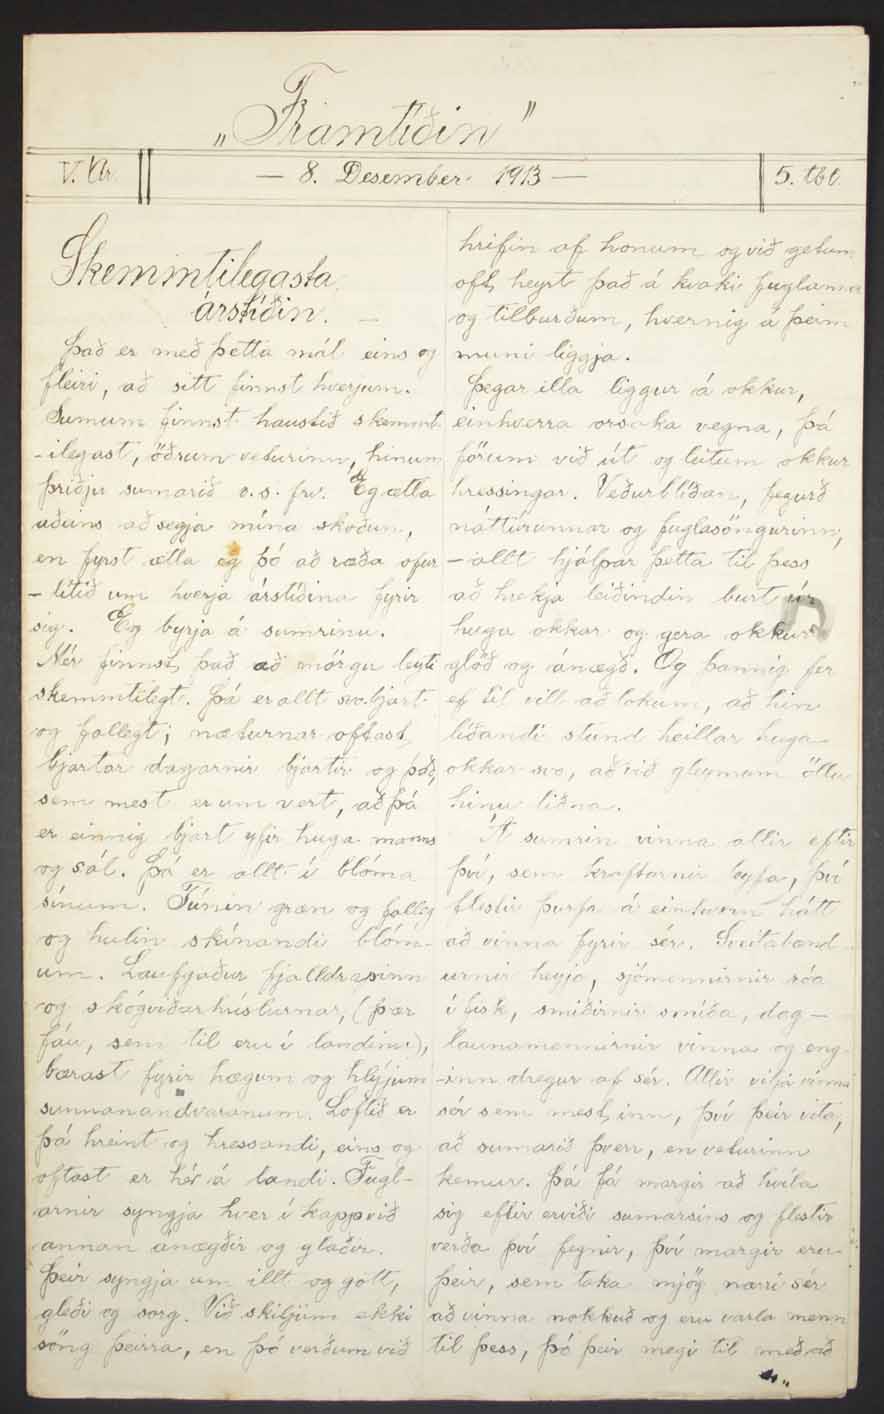 „Framtíðin"
V. Ár
— 8. Desember 1913 —
5. tbl.
Skemmtilegasta
árstíðin. —
Það er með þetta mál eins og
fleiri, að sitt finnst hverjum.
Sumum finnst haustið skemmt-
-ilegast, öðrum veturinn, hinum
þriðju sumarið o.s.frv. Eg ætla
aðeins að segja mína skoðun,
en fyrst ætla eg þó að ræða ofur
-lítið um hverja árstíðina fyrir
sig. Eg byrja á sumrinu.
Mér finnst það að mörgu leyti
skemmtilegt. Þá er allt svo bjart
og fallegt; næturnar oftast
bjartar dagarnir bjartir og það,
sem mest er um vert, að þá
er einnig bjart yfir huga manns
og sál. Þá er allt í blóma
sínum. Túnin græn og falleg
og hulin skínandi blóm-
um. Laufgaður fjalldrapinn
og skógviðarhríslurnar, (þær
fáu, sem til eru í landinu),
bærast fyrir hægum og hlýjum
sunnanandvaranum. Loftið er
þá hreint og hressandi, eins og
oftast er hér á landi. Fugl-
arnir syngja hver í kapp við
annan ánægðir og glaðir.
Þeir syngja um illt og gott,
gleði og sorg. Við skiljum ekki
söng þeirra, en þó verðum við
hrifin af honum og við getum
oft heyrt það á kvaki fuglanna
og tilburðum, hvernig á þeim
muni liggja.
Þegar illa liggur á okkur,
einhverra orsaka vegna, þá
förum við út og leitum okkur
hressingar. Veðurblíðan, fegurð
náttúrunnar og fuglasöngurinn,
— allt hjálpar þetta til þess
að hrekja leiðindin burt úr
huga okkar og gera okkur
glöð og ánægð. Og þannig fer
ef til vill að lokum, að hin
líðandi stund heillar huga
okkar svo, að við gleymum öllu
hinu liðna.
Á sumrin vinna allir eftir
því, sem kraftarnir leyfa, því
flestir þurfa á einhvern hátt
að vinna fyrir sér. Sveitabænd-
urnir heyja, sjómennirnir róa
í fisk, smiðirnir smíða, dag—
launamennirnir vinna og eng-
-inn dregur af sér. Allir vilja vinna
sér sem mest inn, því þeir vita,
að sumarið þverr, en veturinn
kemur. Þá fá margir að hvíla
sig eftir erviði sumarsins og flestir
verða því fegnir, því margir eru
þeir, sem taka mjög nærri sér
að vinna nokkuð og eru varla menn
til þess, þó þeir megi til með að